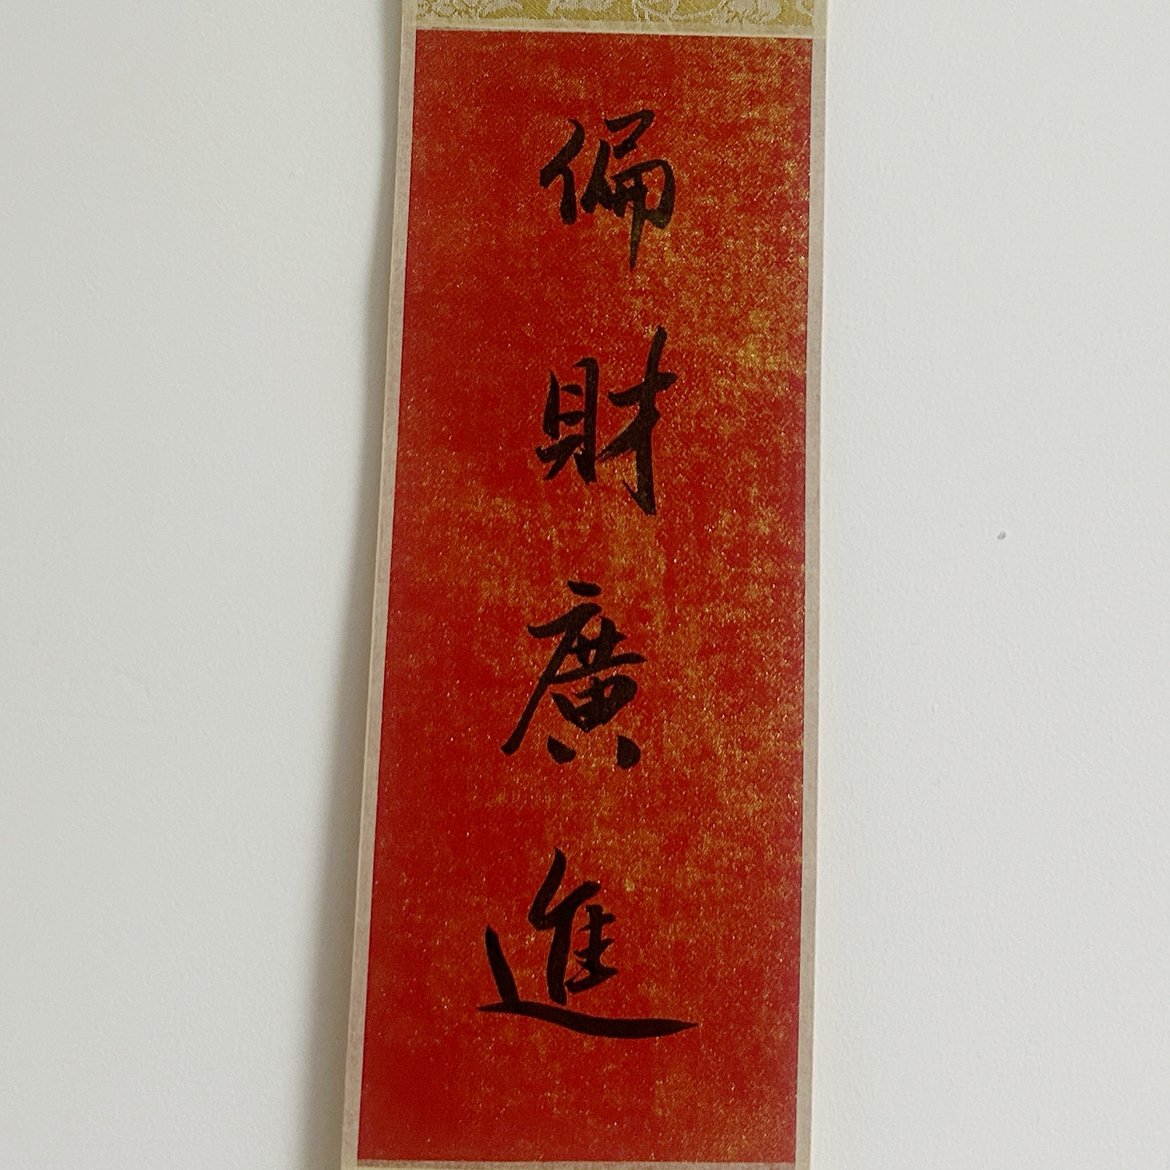 偏財廣進